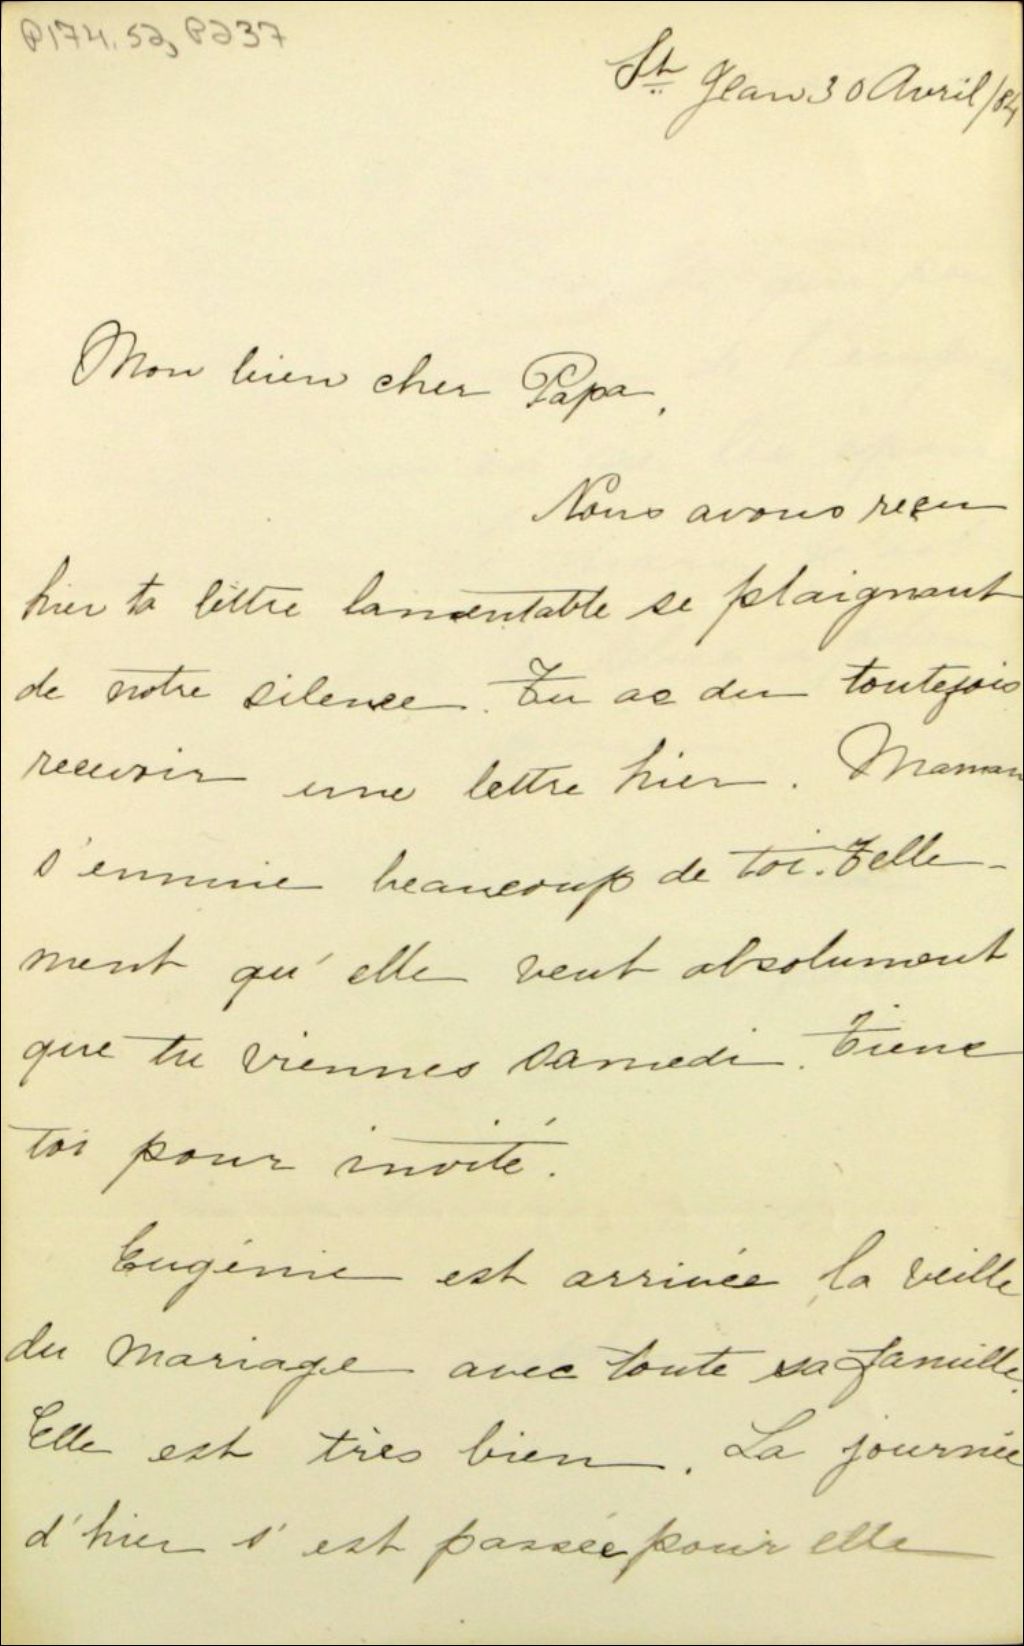 P174.S2, P237
St Jean 30 Avril/84
Mon bien cher Papa,
Nous avons reçu
hier ta lettre lamentable se plaignant
de notre silence. Tu as du toutefois
recevoir une lettre hier. Maman
s'ennuie beaucoup de toi. Telle-
ment qu'elle veut absolument
que tu viennes samedi. Tiens
toi pour invité.
Eugénie est arrivée la veille
du mariage avec toute sa famille.
Elle est très bien. La journée
d'hier s'est passée pour elle